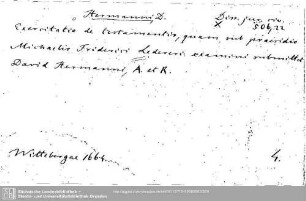 Hermanni D. Diss. jur. civ.
x 506,22
Exercitatio de testamentis, quam sub praesidio
Michaelis Friderici Lederer examini submittet
David Hermanni, A. et R.
Wittebergae 1664.
4.
Sächsische Landesbibliothek -
Staats- und Universitätsbibliothek Dresden